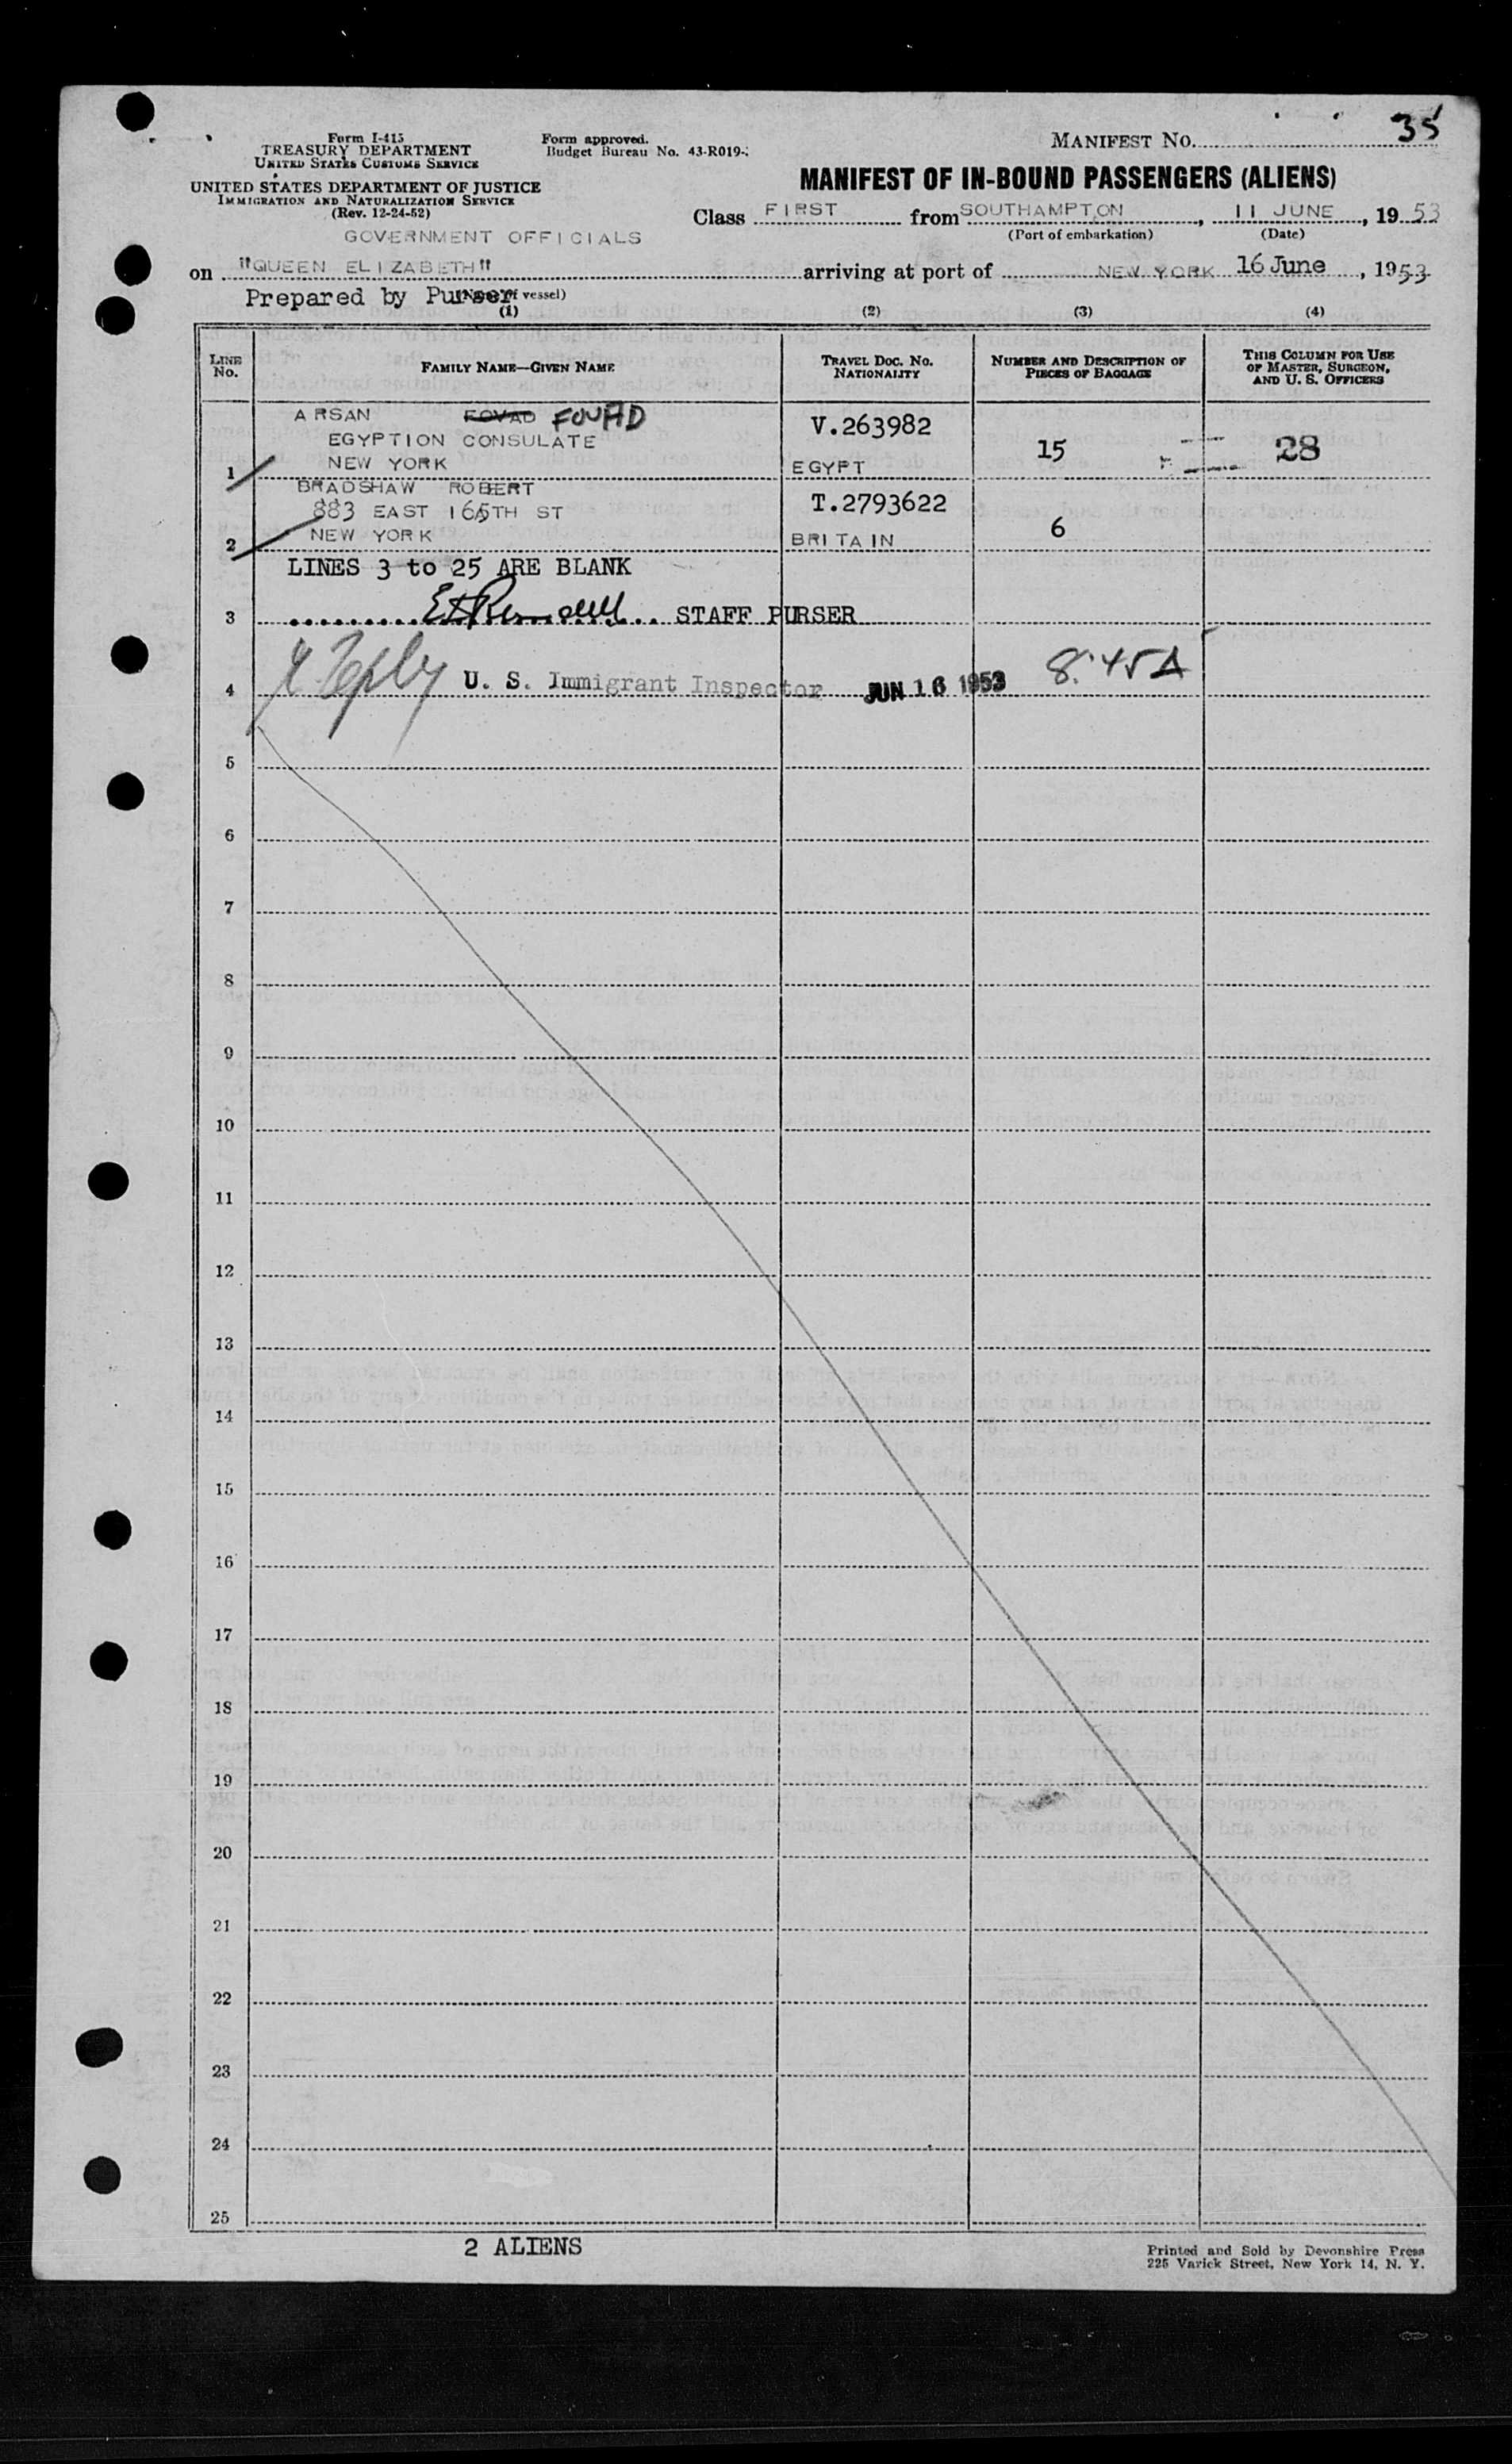 35
Form I-415
TREASURY DEPARTMENT
UNITED STATES CUSTOMS SERVICE
Form approved.
Budget Bureau No. 43-R019-
MANIFEST NO.
UNITED STATES DEPARTMENT OF JUSTICE
IMMIGRATION AND NATURALIZATION SERVICE
(Rev. 12-24-52)
MANIFEST OF IN-BOUND PASSENGERS (ALIENS)
Class FIRST from SOUTHAMPTON, 11 JUNE, 1953
(Port of embarkation) (Date)
GOVERNMENT OFFICIALS
on "QUEEN ELIZABETH" arriving at port of NEW YORK 16 June, 1953
Prepared by Purser of vessel)
(1) (2) (3) (4)
LINE No. FAMILY NAME—GIVEN NAME TRAVEL DOC. NO. NATIONALITY NUMBER AND DESCRIPTION OF PIECES OF BAGGAGE THIS COLUMN FOR USE OF MASTER, SURGEON, AND U. S. OFFICERS
ARSAN FOVAD FOUAD V.263982
EGYPTION CONSULATE 15 28
1 NEW YORK EGYPT
BRADSHAW ROBERT T.2793622
883 EAST 165TH ST 6
2 NEW YORK BRITAIN
LINES 3 to 25 ARE BLANK
3 STAFF PURSER
4 U. S. Immigrant Inspector JUN 16 1953 8:45A
5
6
7
8
9
10
11
12
13
14
15
16
17
18
19
20
21
22
23
24
25
2 ALIENS
Printed and Sold by Devonshire Press
225 Varick Street, New York 14, N. Y.